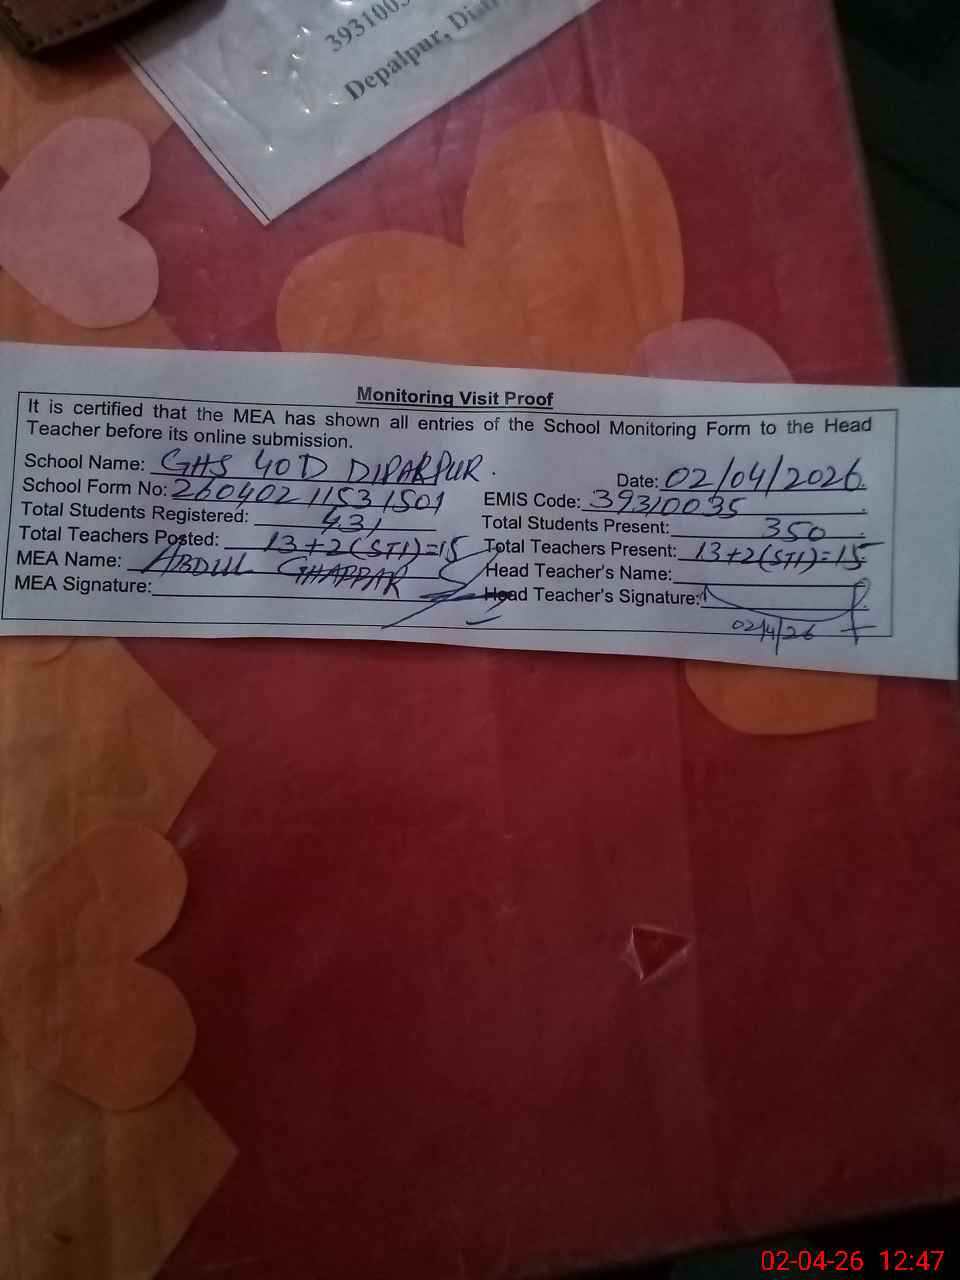 3931003
Depalpur, Distr
Monitoring Visit Proof
It is certified that the MEA has shown all entries of the School Monitoring Form to the Head
Teacher before its online submission.
School Name: GHS 40 D DIPALPUR. Date: 02/04/2026
School Form No: 260402 11531501 EMIS Code: 39310035
Total Students Registered: 431 Total Students Present: 350
Total Teachers Posted: 13+2(STI)=15 Total Teachers Present: 13+2(STI)=15
MEA Name: ABDUL GHAFFAR Head Teacher's Name:
MEA Signature: Head Teacher's Signature:
02/4/26
02-04-26 12:47